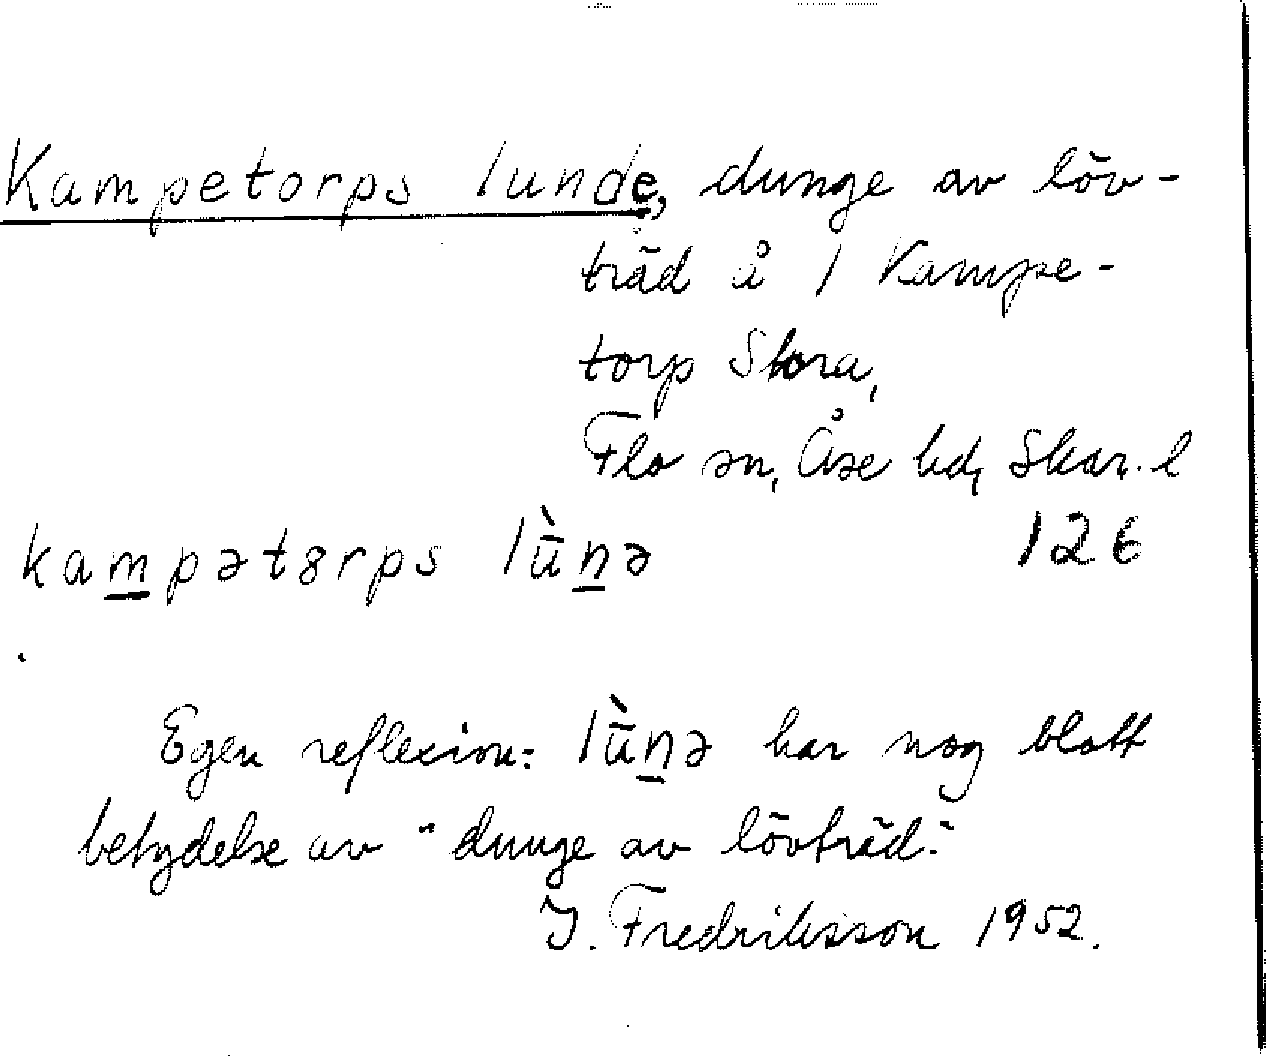 Kampetorps lunde, dunge av löv-
träd å 1 Kampe-
torp Stora,
Flo sn, Åse hd, Skar. l
kam̲pətɞrps lū̀n̲ə 126
Egen reflexion: lū̀n̲ə har nog blott
betydelse av "dunge av lövträd."
I. Fredriksson 1952.